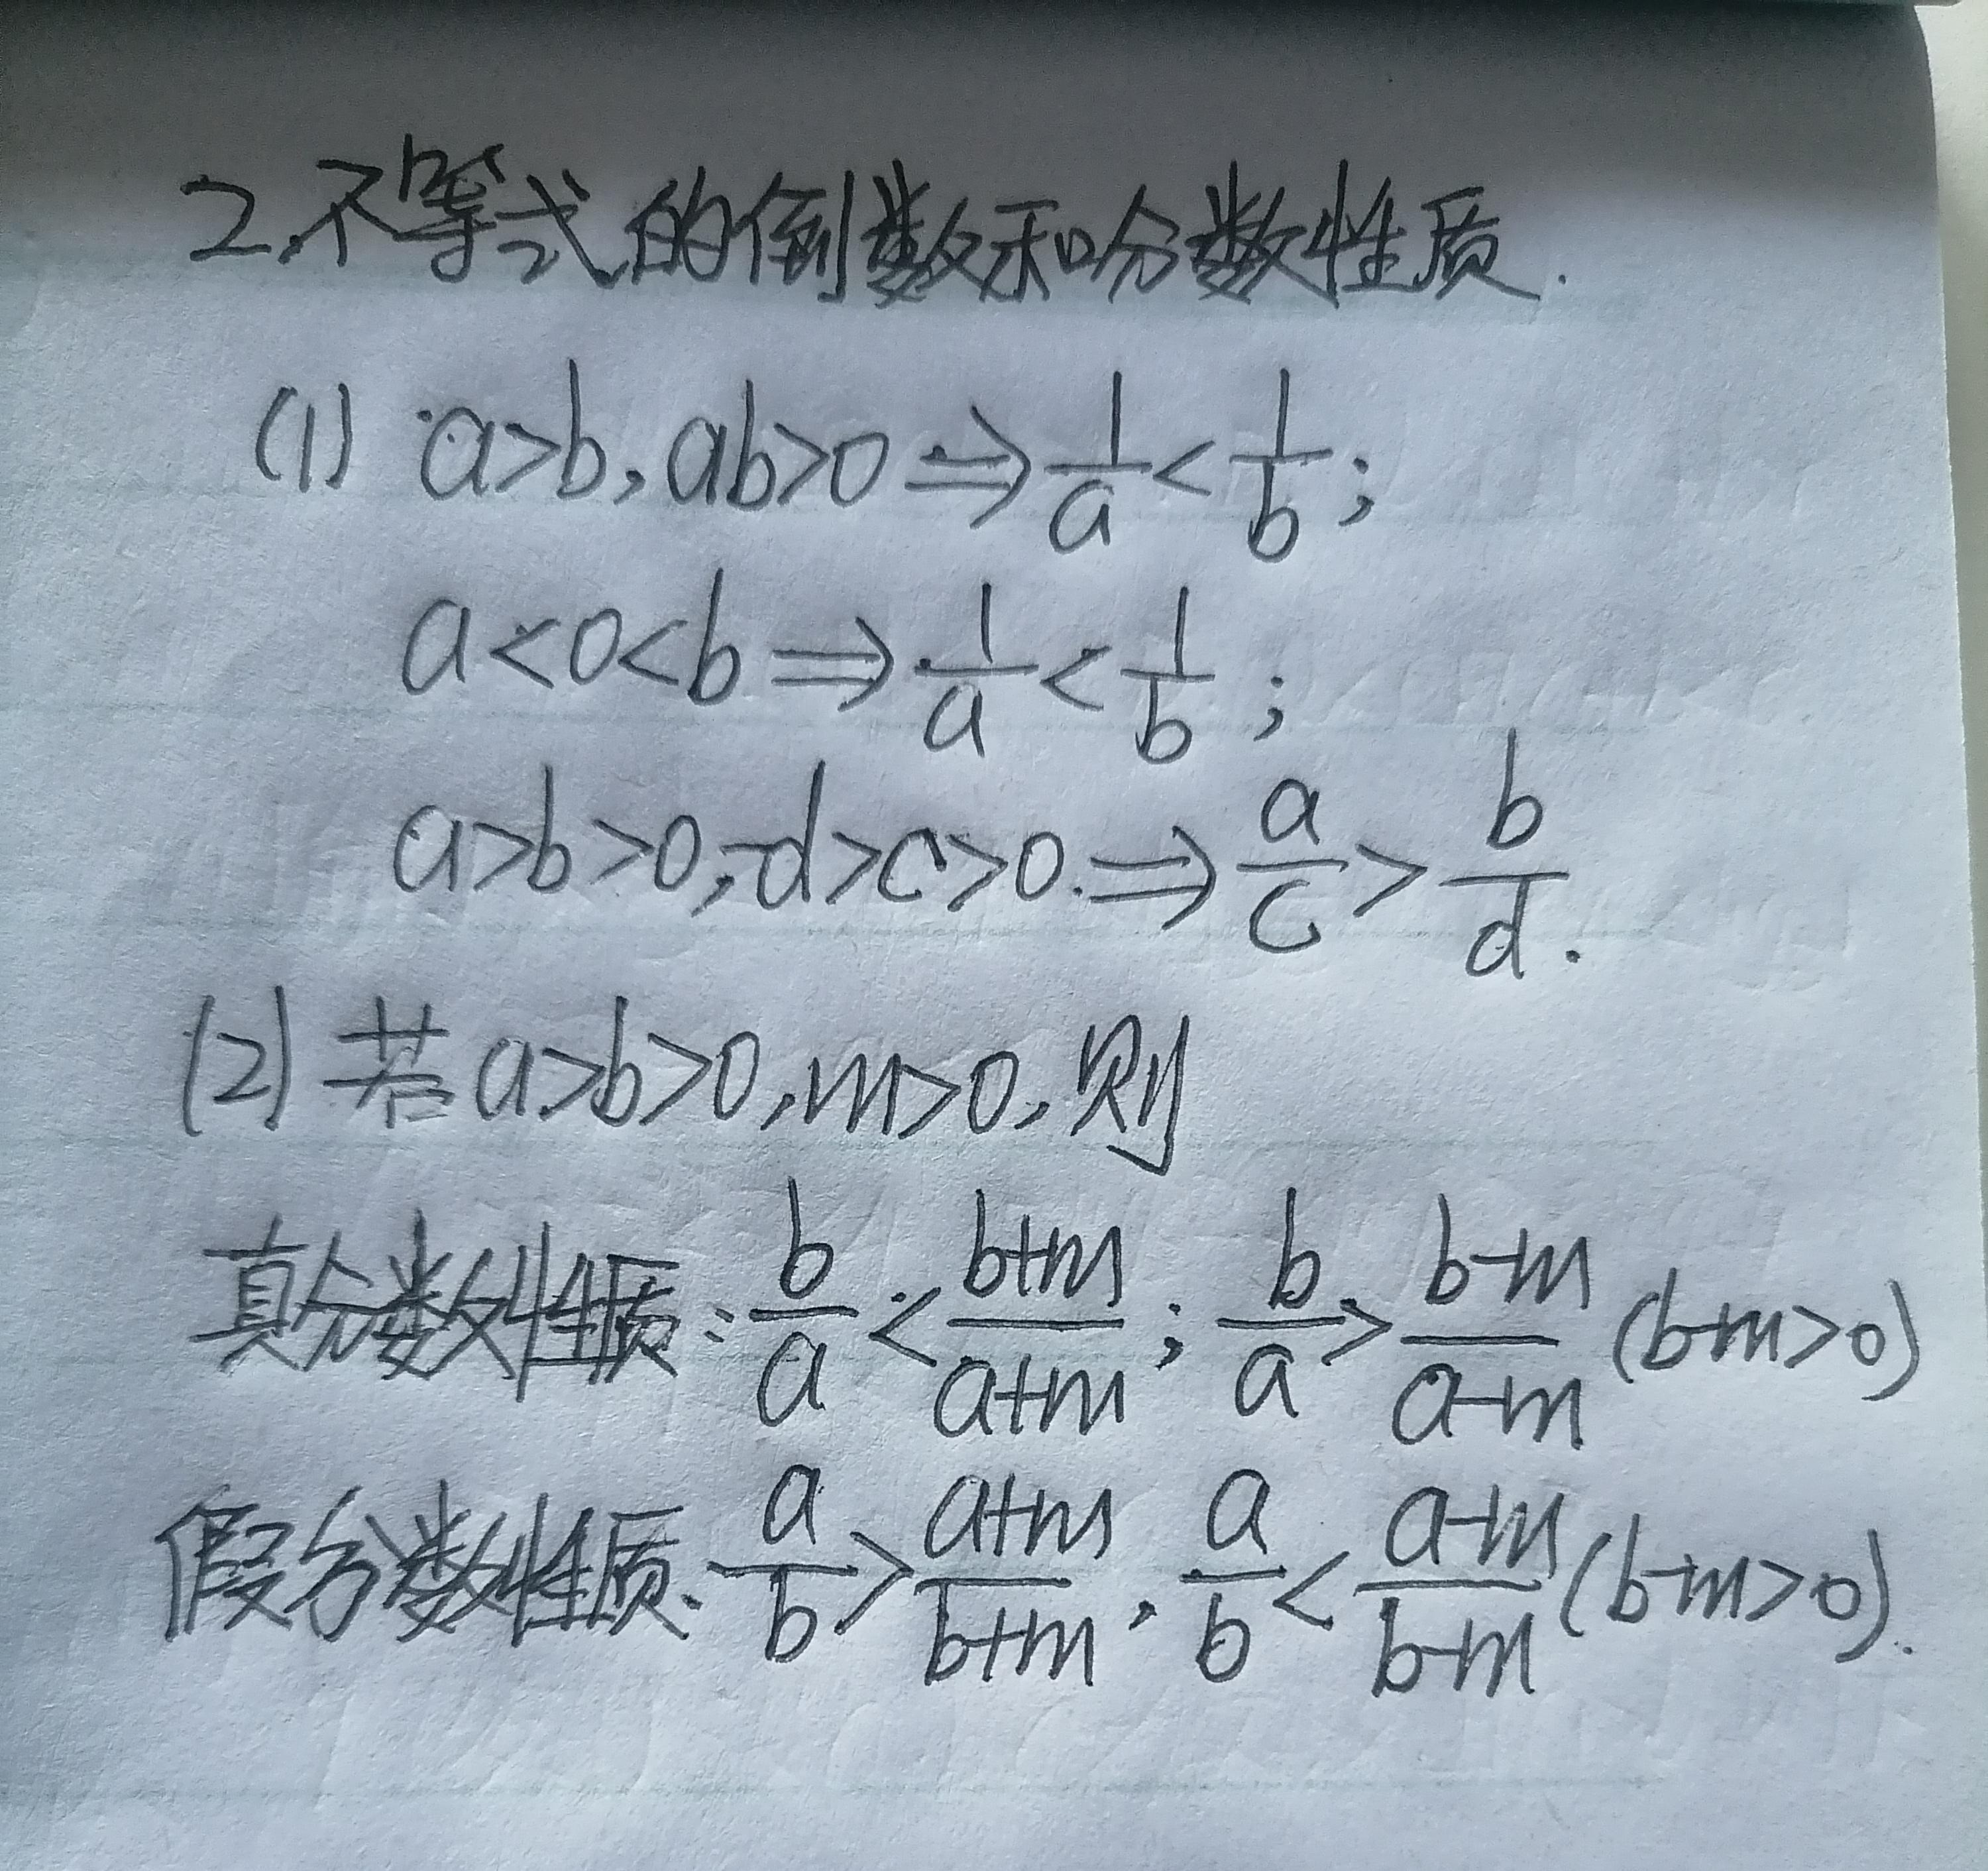 2.不等式的倒数和分数性质.
(1) a>b,ab>0⇒1/a<1/b;
a<0<b⇒1/a<1/b;
a>b>0,d>c>0⇒a/c>b/d.
(2)若a>b>0,m>0,则
真分数性质:b/a<(b+m)/(a+m);b/a>(b-m)/(a-m)(b-m>0)
假分数性质:a/b>(a+m)/(b+m),a/b<(a-m)/(b-m)(b-m>0).